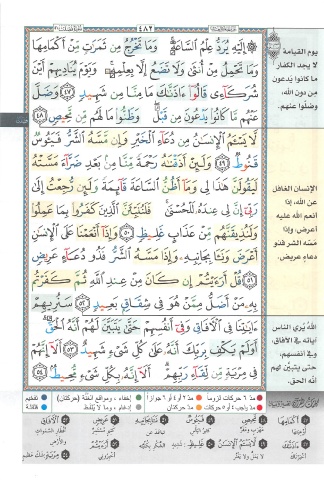 ٤٨٢
إِلَيْهِ يُرَدُّ عِلْمُ السَّاعَةِ وَمَا تَخْرُجُ مِن ثَمَرَٰتٍ مِّنْ أَكْمَامِهَا
وَمَا تَحْمِلُ مِنْ أُنثَىٰ وَلَا تَضَعُ إِلَّا بِعِلْمِهِ وَيَوْمَ يُنَادِيهِمْ أَيْنَ
شُرَكَآءِى قَالُوٓا۟ ءَاذَنَّٰكَ مَا مِنَّا مِن شَهِيدٍ ٤٧ وَضَلَّ
عَنْهُم مَّا كَانُوا۟ يَدْعُونَ مِن قَبْلُ وَظَنُّوا۟ مَا لَهُم مِّن مَّحِيصٍ ٤٨
لَّا يَسْـَٔمُ الْإِنسَٰنُ مِن دُعَآءِ الْخَيْرِ وَإِن مَّسَّهُ الشَّرُّ فَيَـُٔوسٌ
قَنُوطٌ ٤٩ وَلَئِنْ أَذَقْنَٰهُ رَحْمَةً مِّنَّا مِنۢ بَعْدِ ضَرَّآءَ مَسَّتْهُ
لَيَقُولَنَّ هَٰذَا لِى وَمَآ أَظُنُّ السَّاعَةَ قَآئِمَةً وَلَئِن رُّجِعْتُ إِلَىٰ
رَبِّىٓ إِنَّ لِى عِندَهُۥ لَلْحُسْنَىٰ فَلَنُنَبِّئَنَّ الَّذِينَ كَفَرُوا۟ بِمَا عَمِلُوا۟
وَلَنُذِيقَنَّهُم مِّنْ عَذَابٍ غَلِيظٍ ٥٠ وَإِذَآ أَنْعَمْنَا عَلَى الْإِنسَٰنِ
أَعْرَضَ وَنَـَٔا بِجَانِبِهِۦ وَإِذَا مَسَّهُ الشَّرُّ فَذُو دُعَآءٍ عَرِيضٍ ٥١
قُلْ أَرَءَيْتُمْ إِن كَانَ مِنْ عِندِ اللَّهِ ثُمَّ كَفَرْتُم
بِهِۦ مَنْ أَضَلُّ مِمَّنْ هُوَ فِى شِقَاقٍۭ بَعِيدٍ ٥٢ سَنُرِيهِمْ
ءَايَٰتِنَا فِى الْءَافَاقِ وَفِىٓ أَنفُسِهِمْ حَتَّىٰ يَتَبَيَّنَ لَهُمْ أَنَّهُ الْحَقُّ
أَوَلَمْ يَكْفِ بِرَبِّكَ أَنَّهُۥ عَلَىٰ كُلِّ شَىْءٍ شَهِيدٌ ٥٣ أَلَآ إِنَّهُمْ
فِى مِرْيَةٍ مِّن لِّقَآءِ رَبِّهِمْ أَلَآ إِنَّهُۥ بِكُلِّ شَىْءٍ مُّحِيطٌۢ ٥٤
يوم القيامة
لا يجد الكفار
ما كانوا يدعون
من دون الله،
وضلوا عنهم.
الإنسان الغافل
عن الله، إذا
أنعم الله عليه
أعرض، وإذا
مسّه الشر فذو
دعاء عريض.
الله يُري الناس
آياته في الآفاق،
وفي أنفسهم،
حتى يتبيّن لهم
أنه الحق.